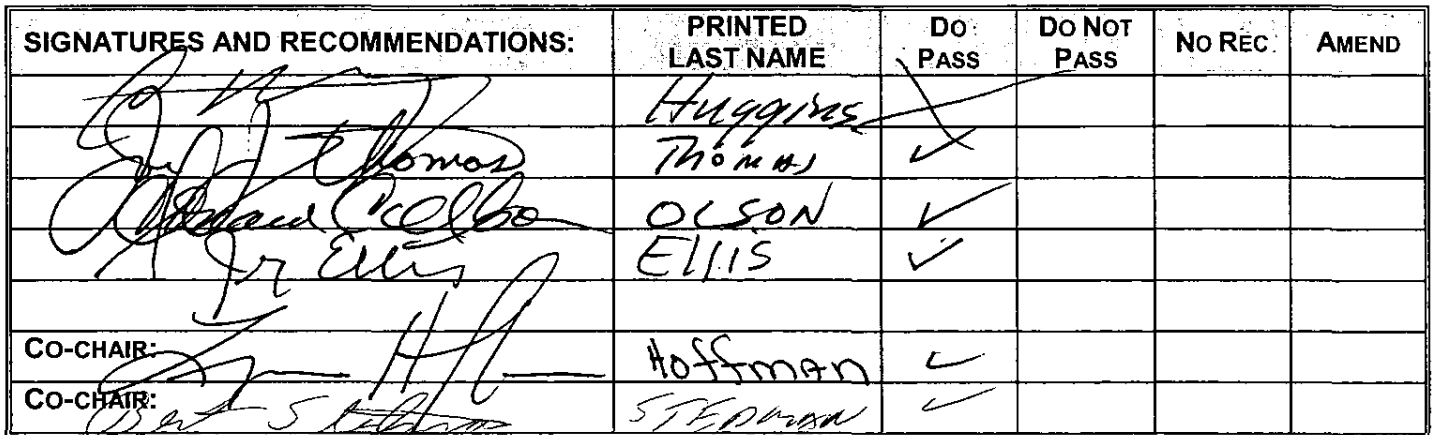 SIGNATURES AND RECOMMENDATIONS: PRINTED LAST NAME DO PASS DO NOT PASS NO REC AMEND
Huggins
Thomas Thomas ✓
OLSON ✓
Jr Ellis Ellis ✓
CO-CHAIR: Hoffman ✓
CO-CHAIR: Bert Stedman STEDMAN ✓